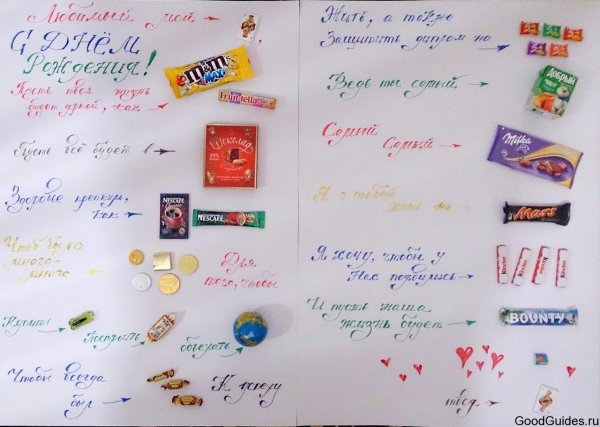 Любимый мой
С ДНЁМ
Рождения!
Пусть твоя жизнь
будет яркой, как
m&m's
MAXI
Fruittella
Пусть всё будет в
Шоколад
Здоровье крепким,
как
NESCAFÉ
NESCAFÉ
Чтоб было
много-
много
Для
того, чтобы
Купить
Построить
объехать
Чтобы всегда
был
К успеху
Жить, а также
Защитить диплом на
Ведь ты самый
Добрый
Самый Самый
Milka
Я с тобой
хоть на
Mars
Я хочу, чтобы у
Нас появились
Kinder
И пусть наша
жизнь будет
BOUNTY
твоя,
GoodGuides.ru